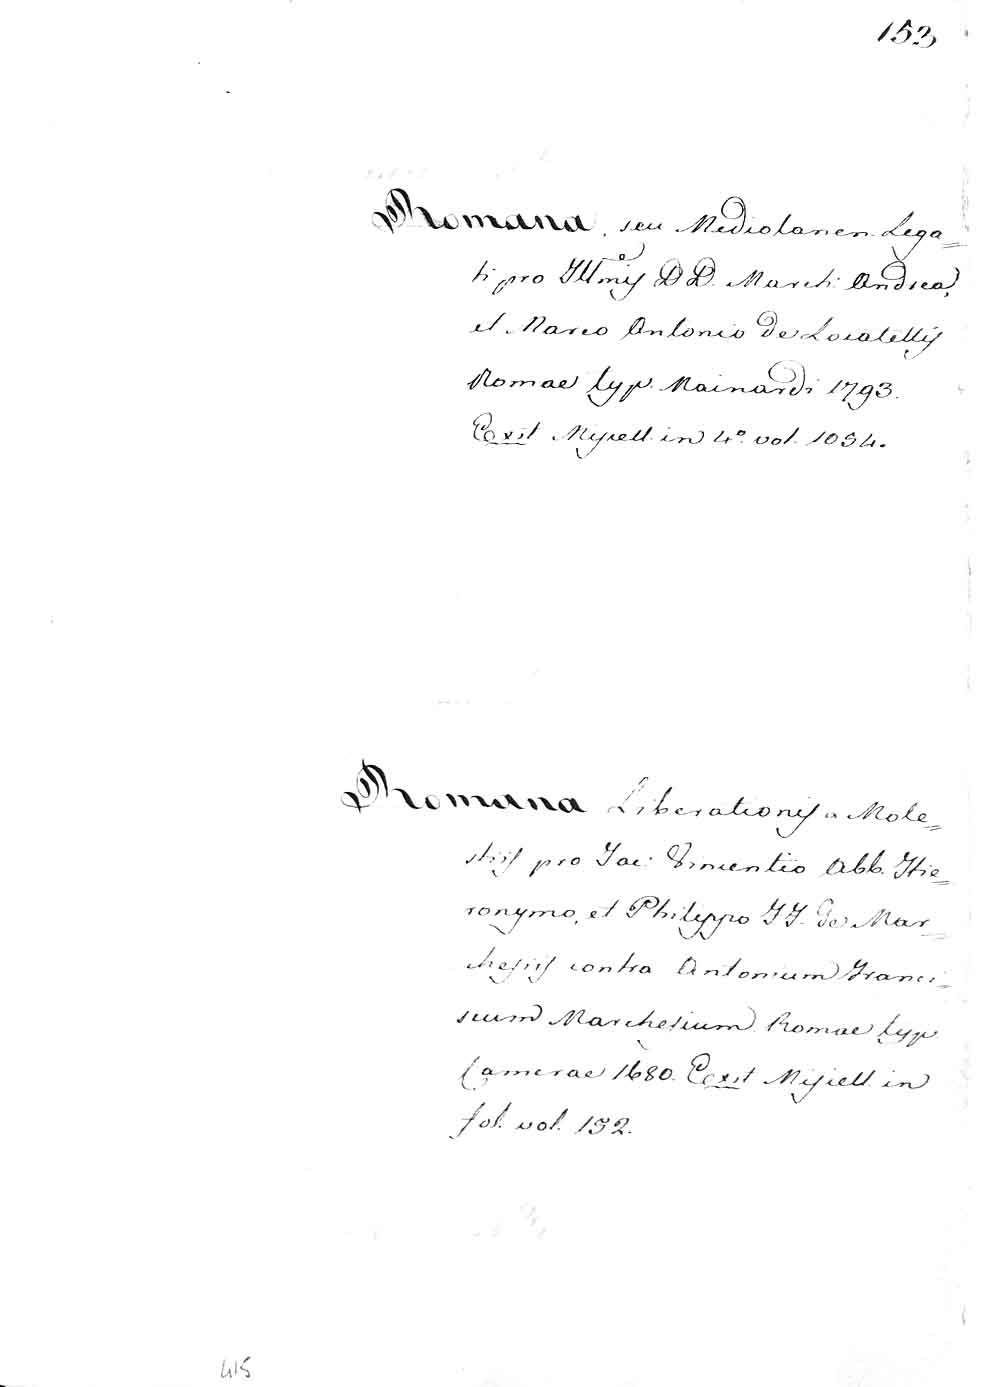 153
Romana, seu Mediolanen. Lega=
ti pro Illmis DD. March: Andrea,
et Marco Antonio de Locatellis
Romae typ. Mainardi 1793.
Exit Miscell. in 4º vol. 1034.
Romana Liberationis a Mole=
stiis pro Jac: Vincentio Abb. Hie=
ronymo, et Philippo JJ. de Mar=
chesiis contra Antonium Franci=
scum Marchesium Romae typ
Camerae 1680. Exit Miscell. in
fol. vol. 132.
415